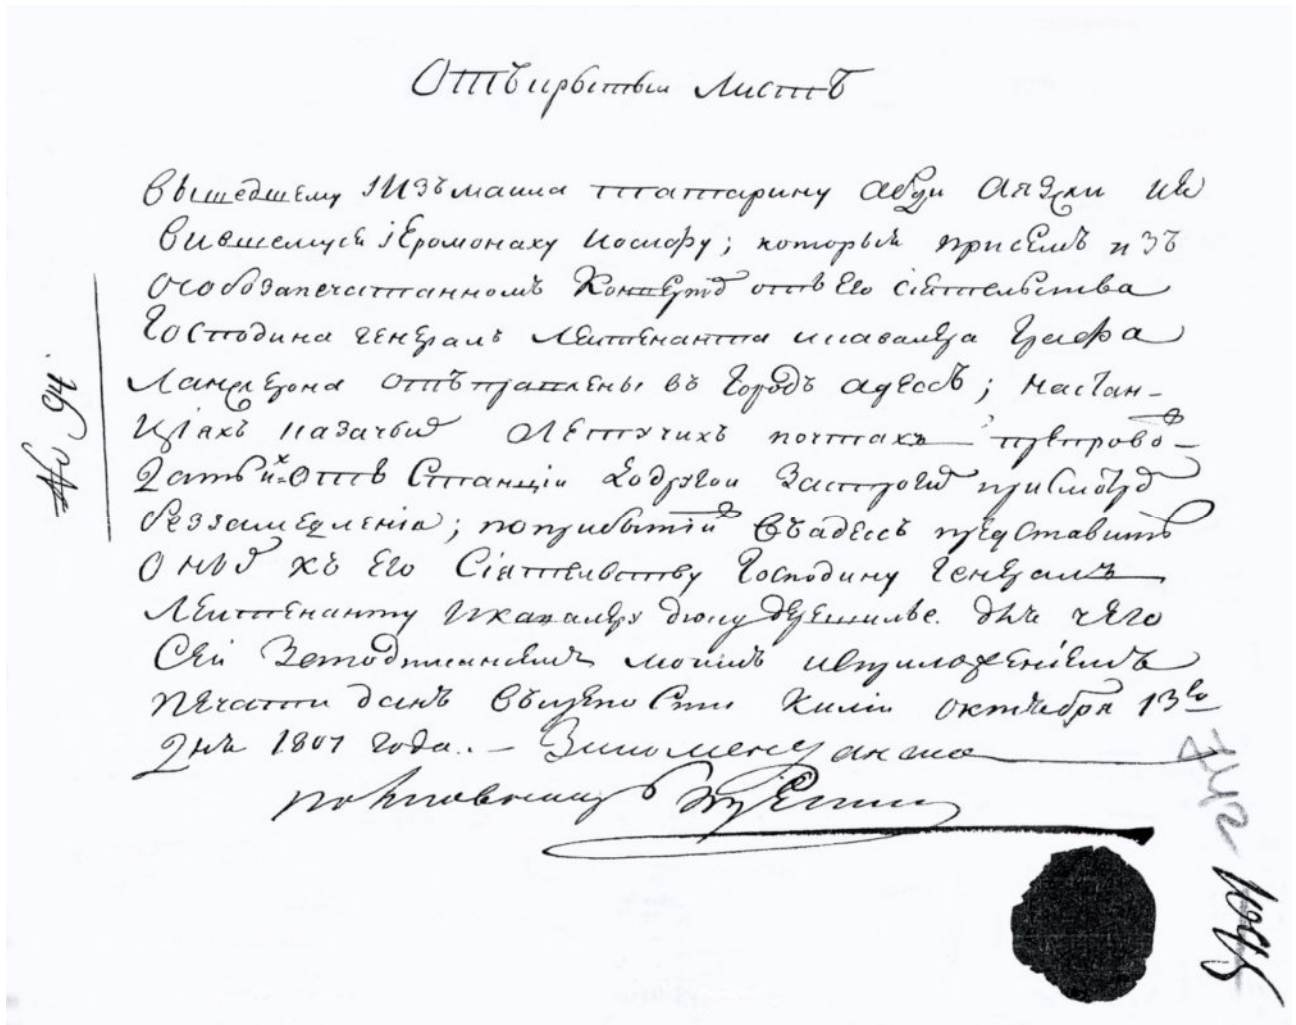 Отъкрытыи Листъ
вышедшему iИзъмаила татарину абди
вившемуся iеромонаху иосифу; которыи присемъ изъ
особозапечатанномъ Конвертѣ отъ Его Сіятельства
Господина Генералъ Лейтенанта икавалера Графа
Ланжерона отъправлены въ Городъ адессъ; настан-
Ціяхъ казачьѣ Летучихъ почтахъ препрово-
дать ихъ отъ Станціи додругои Застрогѣ присмотрѣ
беззамедленіа; поприбытіи въадессъ представить
онѣ къ Его Сіятельству Господину Генералъ
Лейтенанту икавалеру дюку дерешилье. для чего
Сеи Заподписаніемъ моимъ исприложеніемъ
печати данъ въкрепости килiи октября 13го
дня 1807 года. – Заколменданта
подполковникъ
No 94.